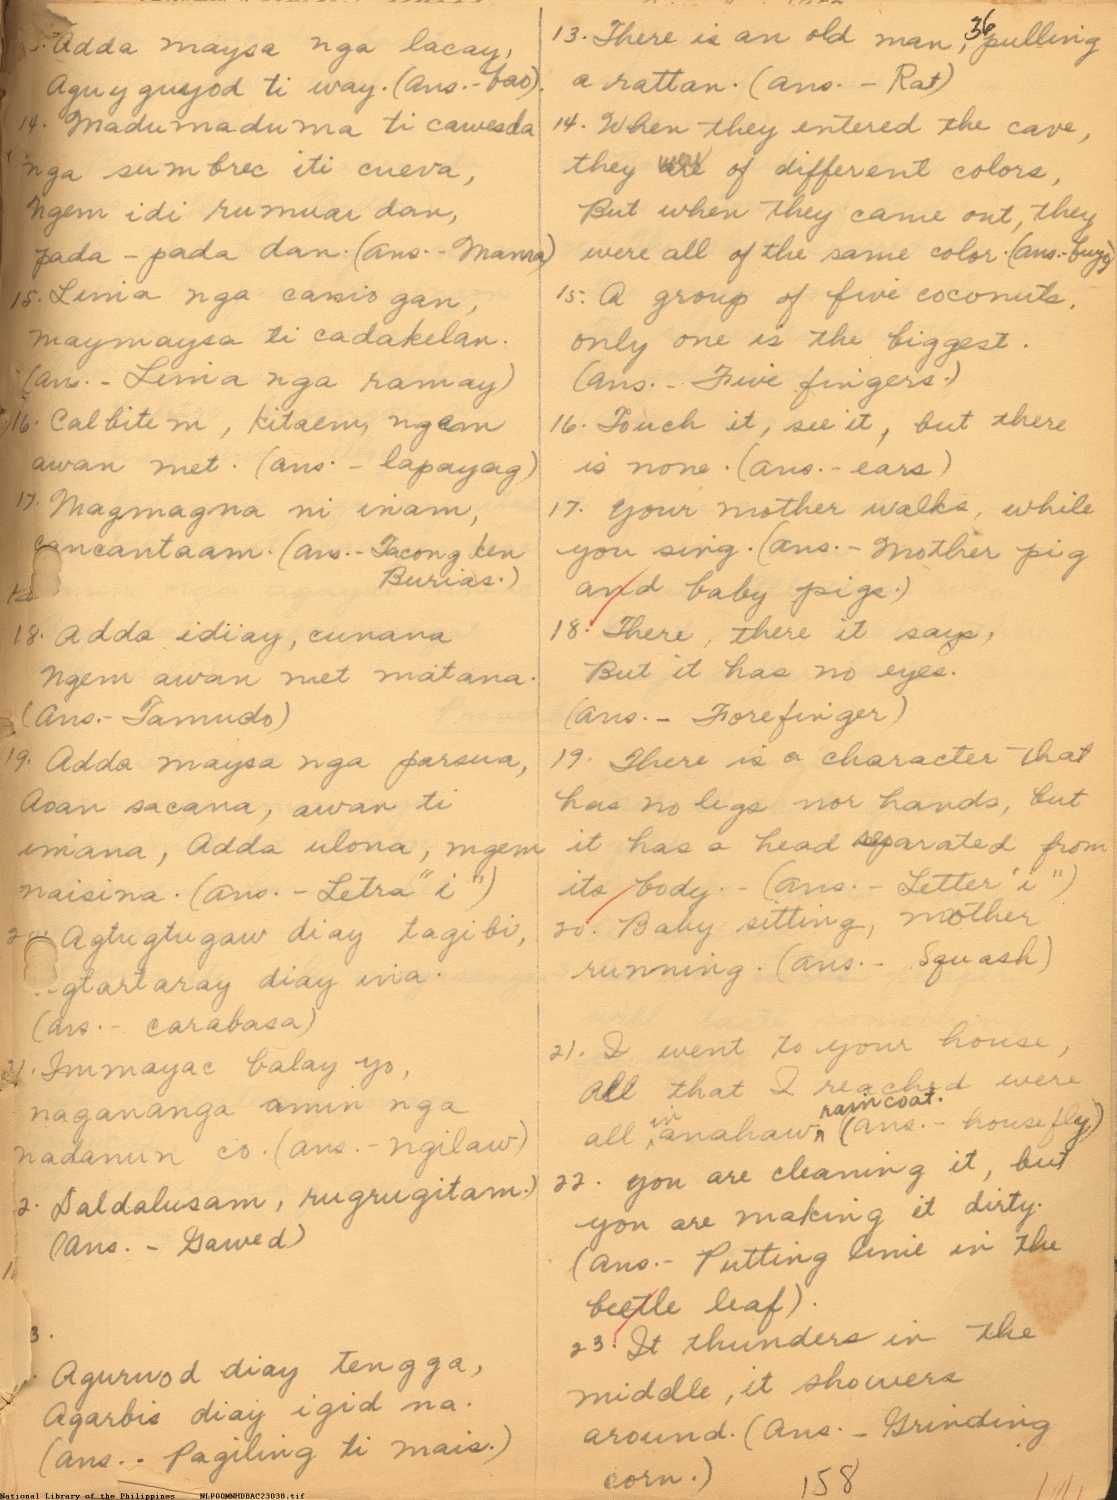 36
Adda maysa nga lacay,
Aguyguyod ti way. (Ans.- bao).
14. Madumaduma ti cawesda
nga sumbrec iti cueva,
Ngem idi rumuar dan,
pada - pada dan. (Ans. - Mama)
15. Lima nga cansiogan,
maymaysa ti cadakelan.
(Ans. - Lima nga ramay)
16. Calbitem, kitaem, ngem
awan met. (Ans. - lapayag)
17. Magmagna ni inam,
cancantaam. (Ans. - Tacong ken
Burias.)
18. Adda idiay, cunana
Ngem awan met matana.
(Ans.- Tamudo)
19. Adda maysa nga parsua,
Aoan sacana, awan ti
imana, Adda ulona, mgem
naisina. (Ans. - Letra "i")
Agtugtugaw diay tagibi,
gtartaray diay ina.
(Ans. - carabasa)
21. Immayac balay yo,
nagananga amin nga
nadanun co. (Ans. - ngilaw)
2. Daldalusam, rugrugitam.)
(Ans. - Gawed)
3.
Agurrod diay tengga,
Agarbis diay igid na.
(Ans. - Pagiling ti mais.)
13. There is an old man, pulling
a rattan. (Ans. - Rat)
14. When they entered the cave,
they are of different colors,
But when they came out, they
were all of the same color. (Ans.- buyo)
15. A group of five coconuts,
only one is the biggest.
(Ans. - Five fingers.)
16. Touch it, see it, but there
is none. (Ans. - ears)
17. Your mother walks, while
you sing. (Ans. - Mother pig
and baby pigs.)
18. There, there it says,
But it has no eyes.
(Ans. - Forefinger)
19. There is a character that
has no legs nor hands, but
it has a head separated from
its body. - (Ans. - Letter "i")
20. Baby sitting, mother
running. (Ans. - Squash)
21. I went to your house,
All that I reached were
all in anahaw raincoat. (Ans. - housefly)
22. You are cleaning it, but
you are making it dirty.
(Ans.- Putting lime in the
beetle leaf).
23. It thunders in the
middle, it showers
around. (Ans. - Grinding
corn.)
158
National Library of the Philippines NLP00MNHDBAC23038.tif